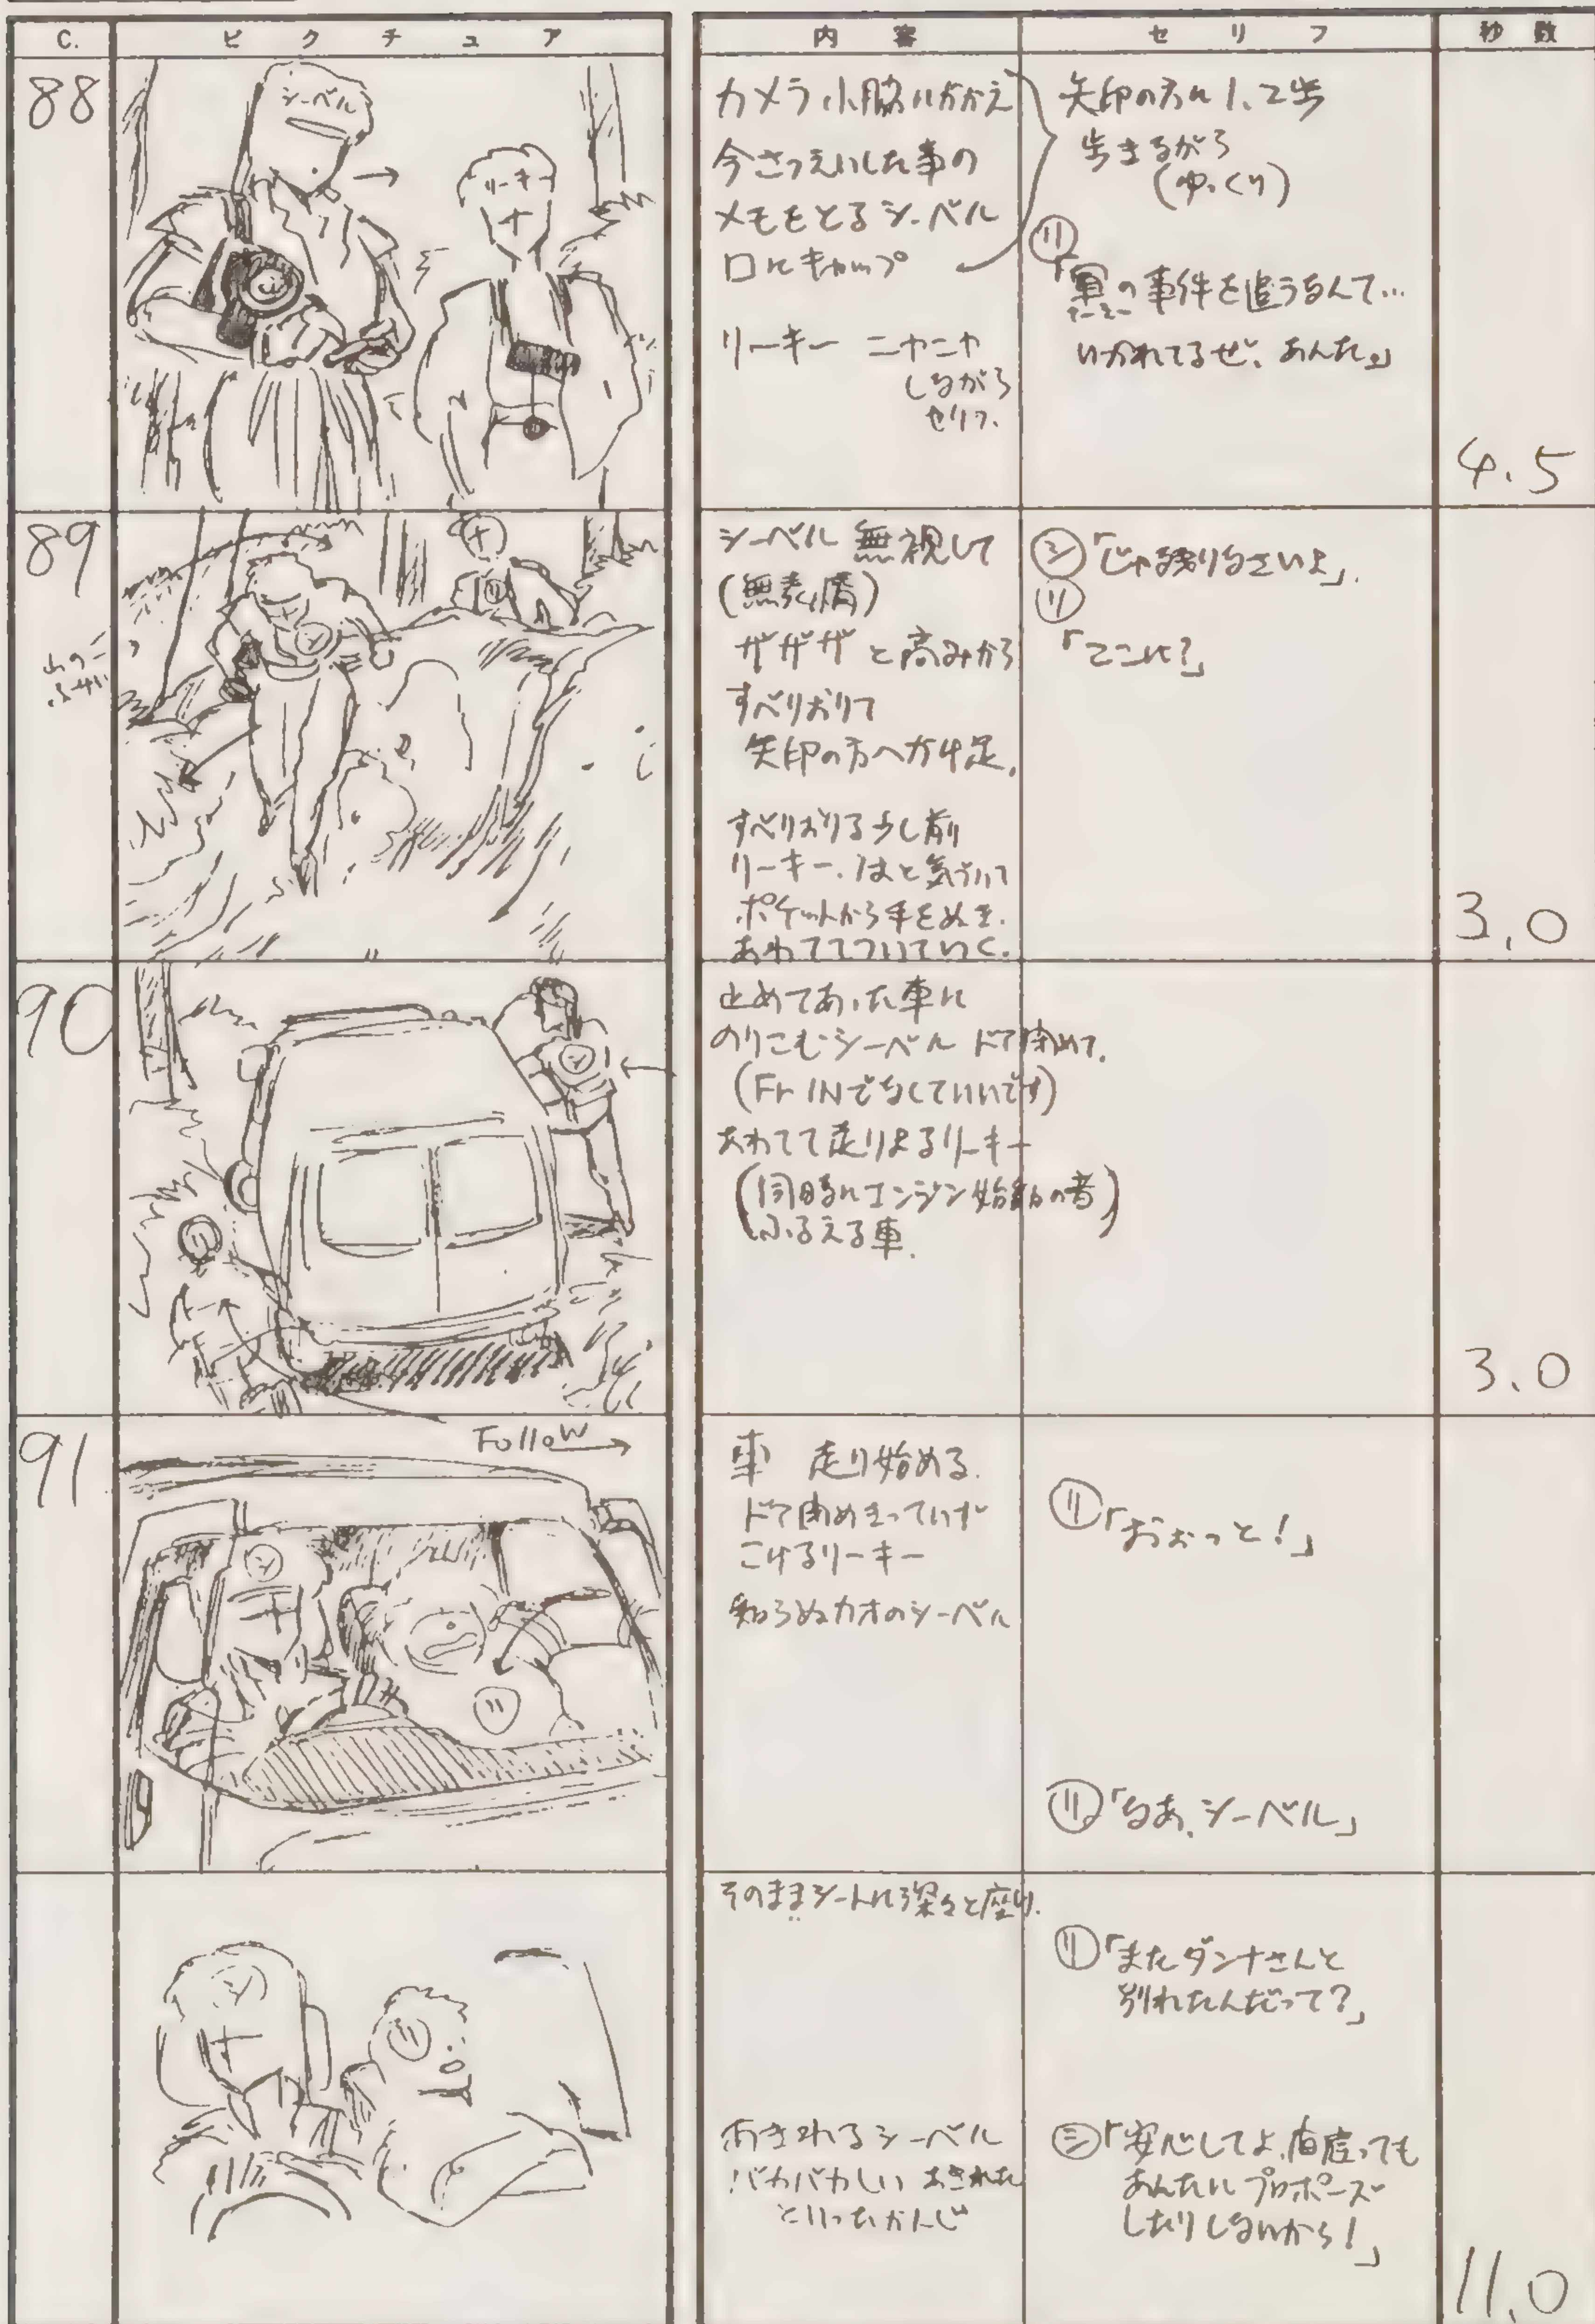 C. ピクチュア 内容 セリフ 秒数
88
シーベル
リーキ
カメラ小脇にかかえ
今さつえいした事の
メモをとるシーベル
口にキャップ
リーキー ニヤニヤ
しながら
セリフ.
矢印の方に1、2歩
歩きながら
(ゆっくり)
リ
「軍の事件を追うなんて…
アーミー
いかれてるぜ、あんた。」
4.5
89
シ
リ
シーベル 無視して
(無表情)
ザザザ と高みから
すべりおりて
矢印の方へかけ足.
すべりおりる少し前
リーキー.はと気づいて
ポケットから手をぬき.
あわててついていく.
シ「じゃ残りなさいよ」.
リ
「ここに?」
3.0
90
シ
リ
止めてあった車に
のりこむシーベル ドア閉めて.
(Fr INでなくていいです)
あわてて走りよるリーキー
(同時にエンジン始動の音)
ふるえる車.
3.0
91
Follow →
シ
リ
車 走り始める.
ドア閉めきっていず
こけるリーキー
知らぬカオのシーベル
リ「おおっと!」
リ「なあ、シーベル」
シ
リ
そのままシートに深々と座り.
リ「またダンナさんと
別れたんだって?」
あきれるシーベル
バカバカしい あきれた
といったかんじ
シ「安心してよ、間違っても
あんたにプロポーズ
したりしないから!」
11.0